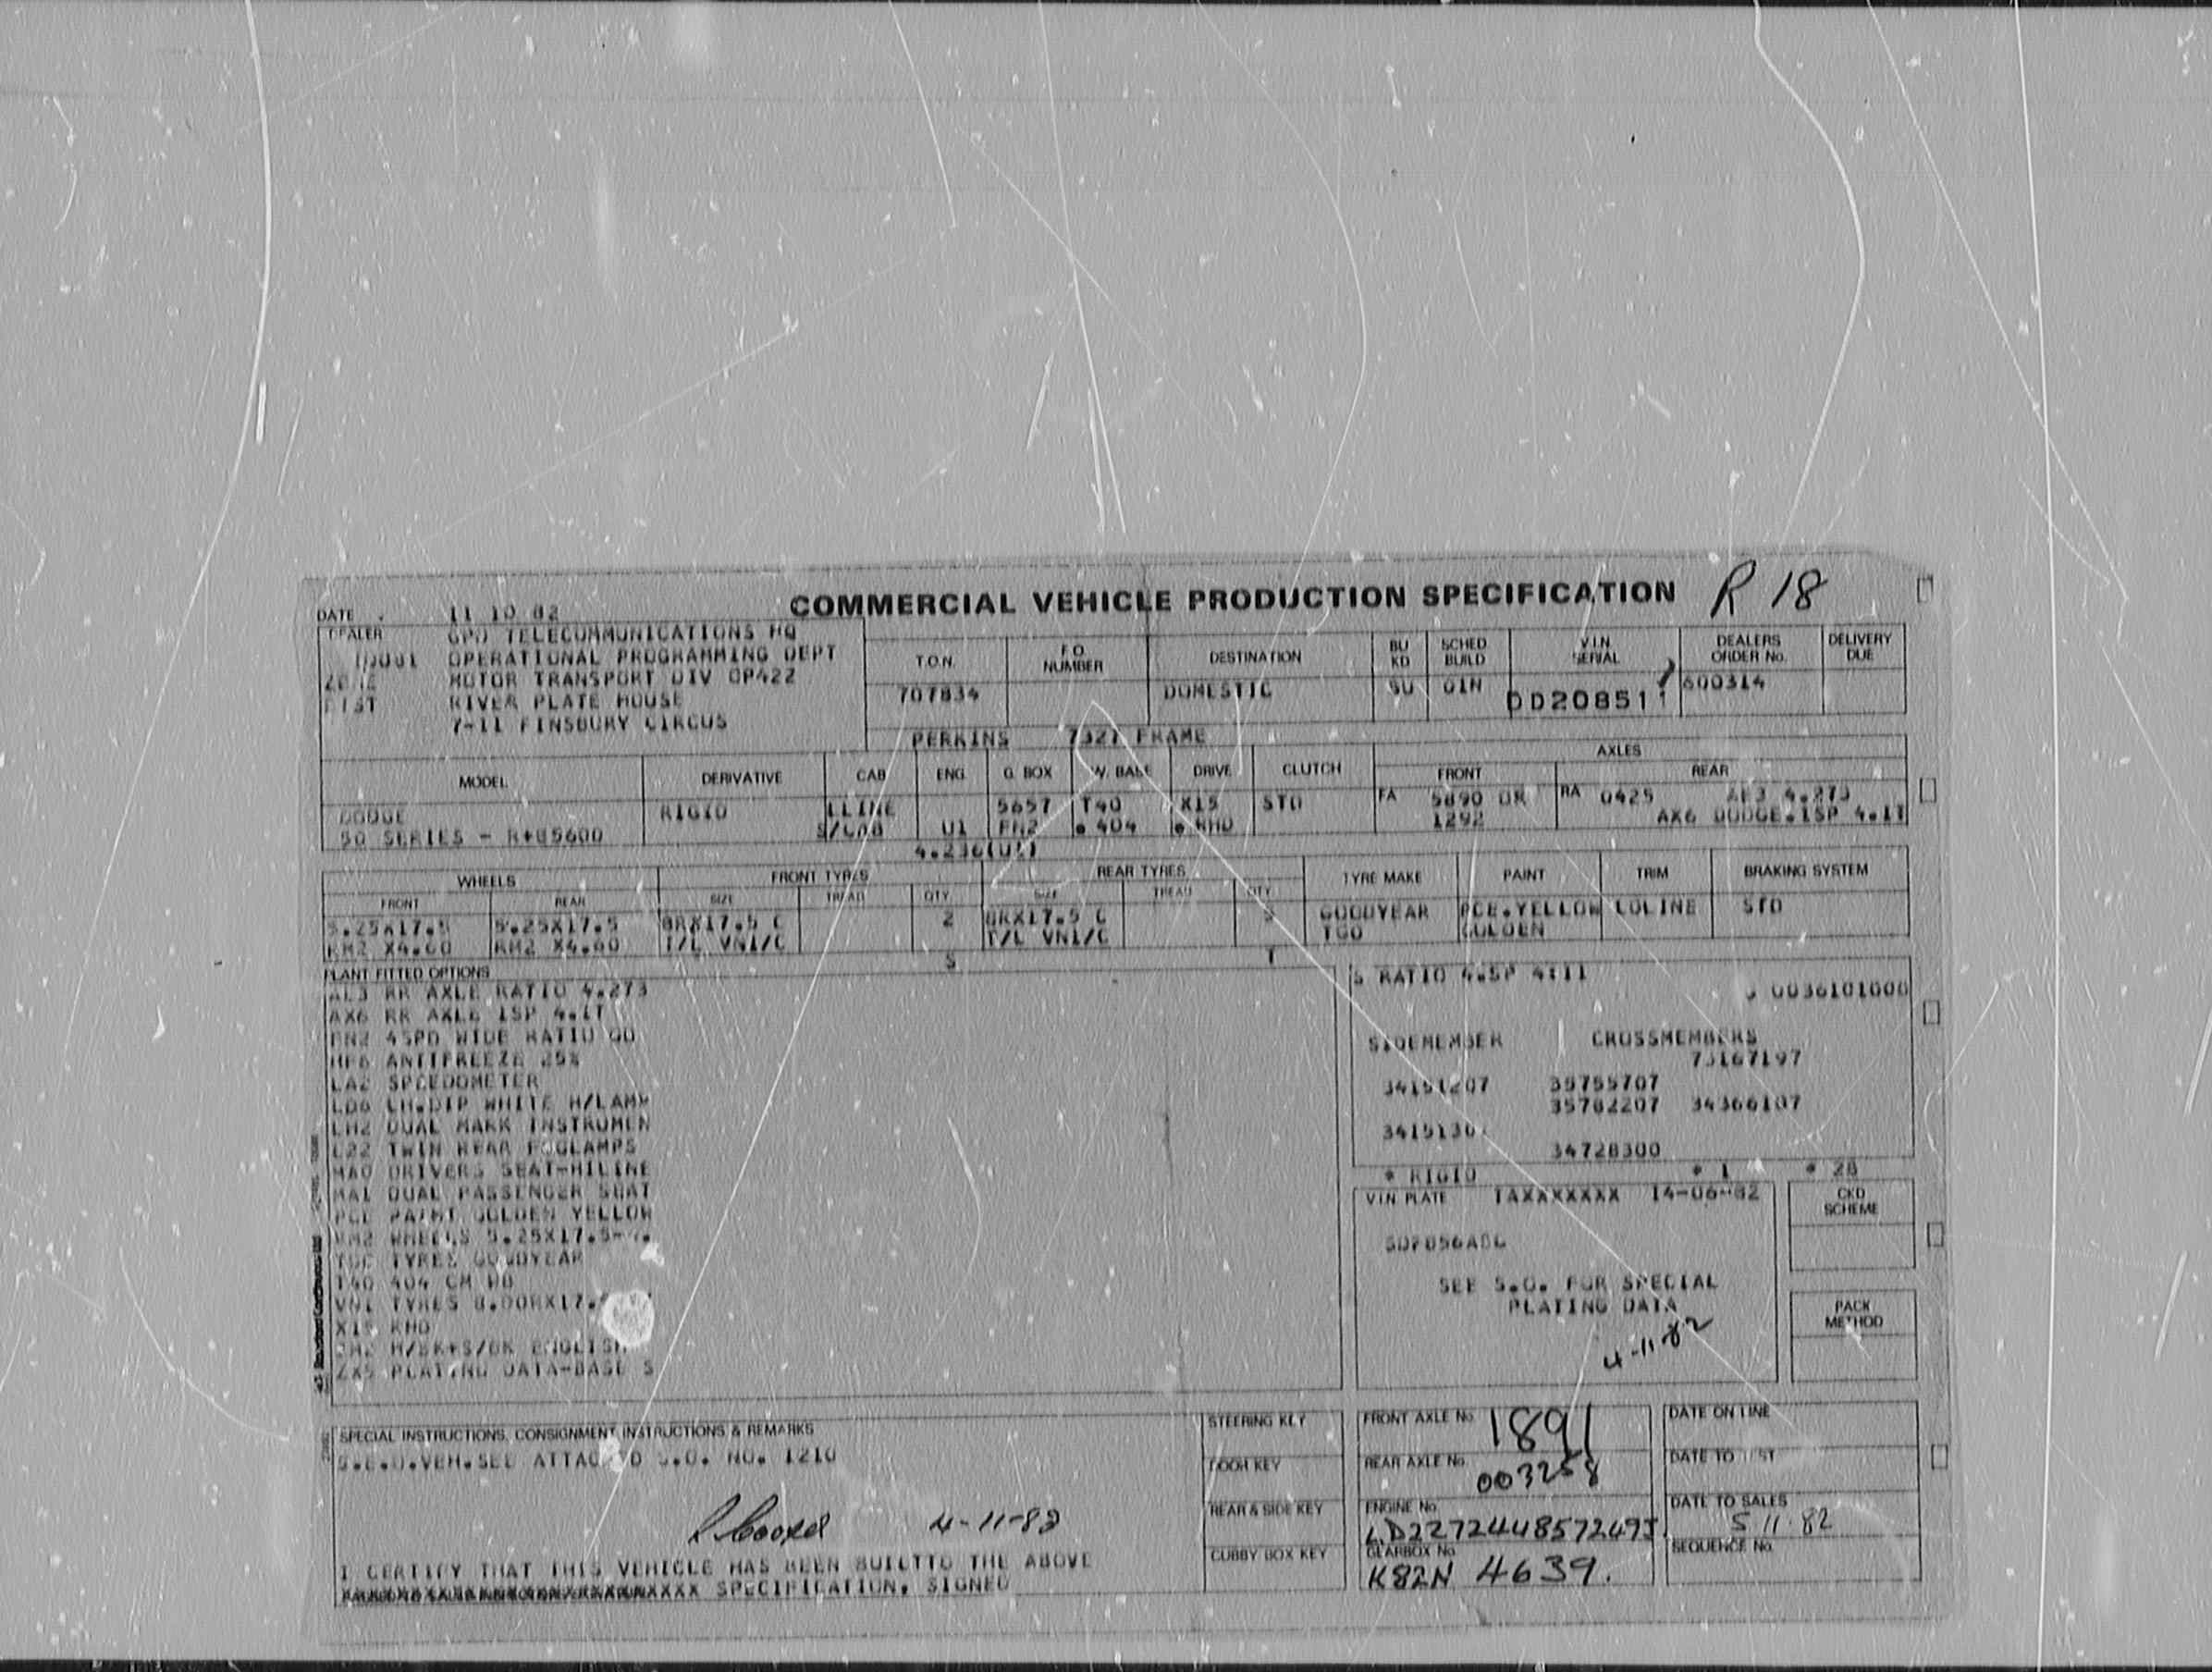 COMMERCIAL VEHICLE PRODUCTION SPECIFICATION R 18
DATE 11 10 82
DEALER GPO TELECOMMUNICATIONS HQ
OPERATIONAL PROGRAMMING DEPT
ZONE MOTOR TRANSPORT DIV OP422
DIST RIVER PLATE HOUSE
7-11 FINSBURY CIRCUS
T.O.N. F.O. NUMBER DESTINATION BU KD SCHED BUILD V.I.N. SERIAL DEALERS ORDER No. DELIVERY DUE
707834 DOMESTIC BU 01N DD208511 600314
PERKINS 7327 FRAME
AXLES
MODEL DERIVATIVE CAB ENG. G. BOX W. BASE DRIVE CLUTCH FRONT REAR
DODGE RIGID LLINE 5657 T40 X15 STD FA 5890 OR RA 0425 AL3 4.273
50 SERIES - S/CAB U1 FN2 .404 .RHD 1292 AX6 DODGE.1SP 4.1T
4.236
WHEELS FRONT TYRES REAR TYRES TYRE MAKE PAINT TRIM BRAKING SYSTEM
FRONT REAR SIZE TREAD QTY. SIZE TREAD QTY
5.25X17.5 5.25X17.5 8RX17.5 C 2 8RX17.5 C GOODYEAR PCE.YELLOW LOLINE STD
RM2 X4.60 RM2 X4.60 T/L VN1/C T/L VN1/C TGO GOLDEN
S T
PLANT FITTED OPTIONS
AL3 RR AXLE RATIO 4.273
AX6 RR AXLE 1SP 4.1T
FN2 4SPD WIDE RATIO OD
ANTIFREEZE 25%
LA2 SPEEDOMETER
LD6 LH.DIP WHITE H/LAMP
LH2 DUAL MARK INSTRUMEN
L22 TWIN REAR FOGLAMPS
MA0 DRIVERS SEAT-HILINE
MA1 DUAL PASSENGER SEAT
PCE PAINT GOLDEN YELLOW
RM2 WHEELS 5.25X17.5
TYRES GOODYEAR
T40 404 CM WB
VN1 TYRES 8.00RX17.
X15 RHD
H/BK+S/BK ENGLISH
ZX5 PLATING DATA-BASE S
S RATIO 4.SP 4:11
0036101000
SIDEMEMBER CROSSMEMBERS
73167197
34151207 35755707
35762207 34366107
3415130
34728300
* RIGID * 1 * 28
VIN PLATE TAXXXXXXX 14-06-82
SEE S.O. FOR SPECIAL
PLATING DATA
4-11-82
CKD SCHEME
PACK METHOD
SPECIAL INSTRUCTIONS, CONSIGNMENT INSTRUCTIONS & REMARKS
S.E.O.VEH.SEE ATTACHED S.O. NO. 1210
R Cooper 4-11-82
I CERTIFY THAT THIS VEHICLE HAS BEEN BUILTTO THE ABOVE
SPECIFICATION, SIGNED
STEERING KEY
DOOR KEY
REAR & SIDE KEY
CUBBY BOX KEY
FRONT AXLE No. 1891
REAR AXLE No. 003258
ENGINE No. LD22724485724 9J
GEARBOX No. K82N 4639.
DATE ON LINE
DATE TO TEST
DATE TO SALES 5 11 82
SEQUENCE No.